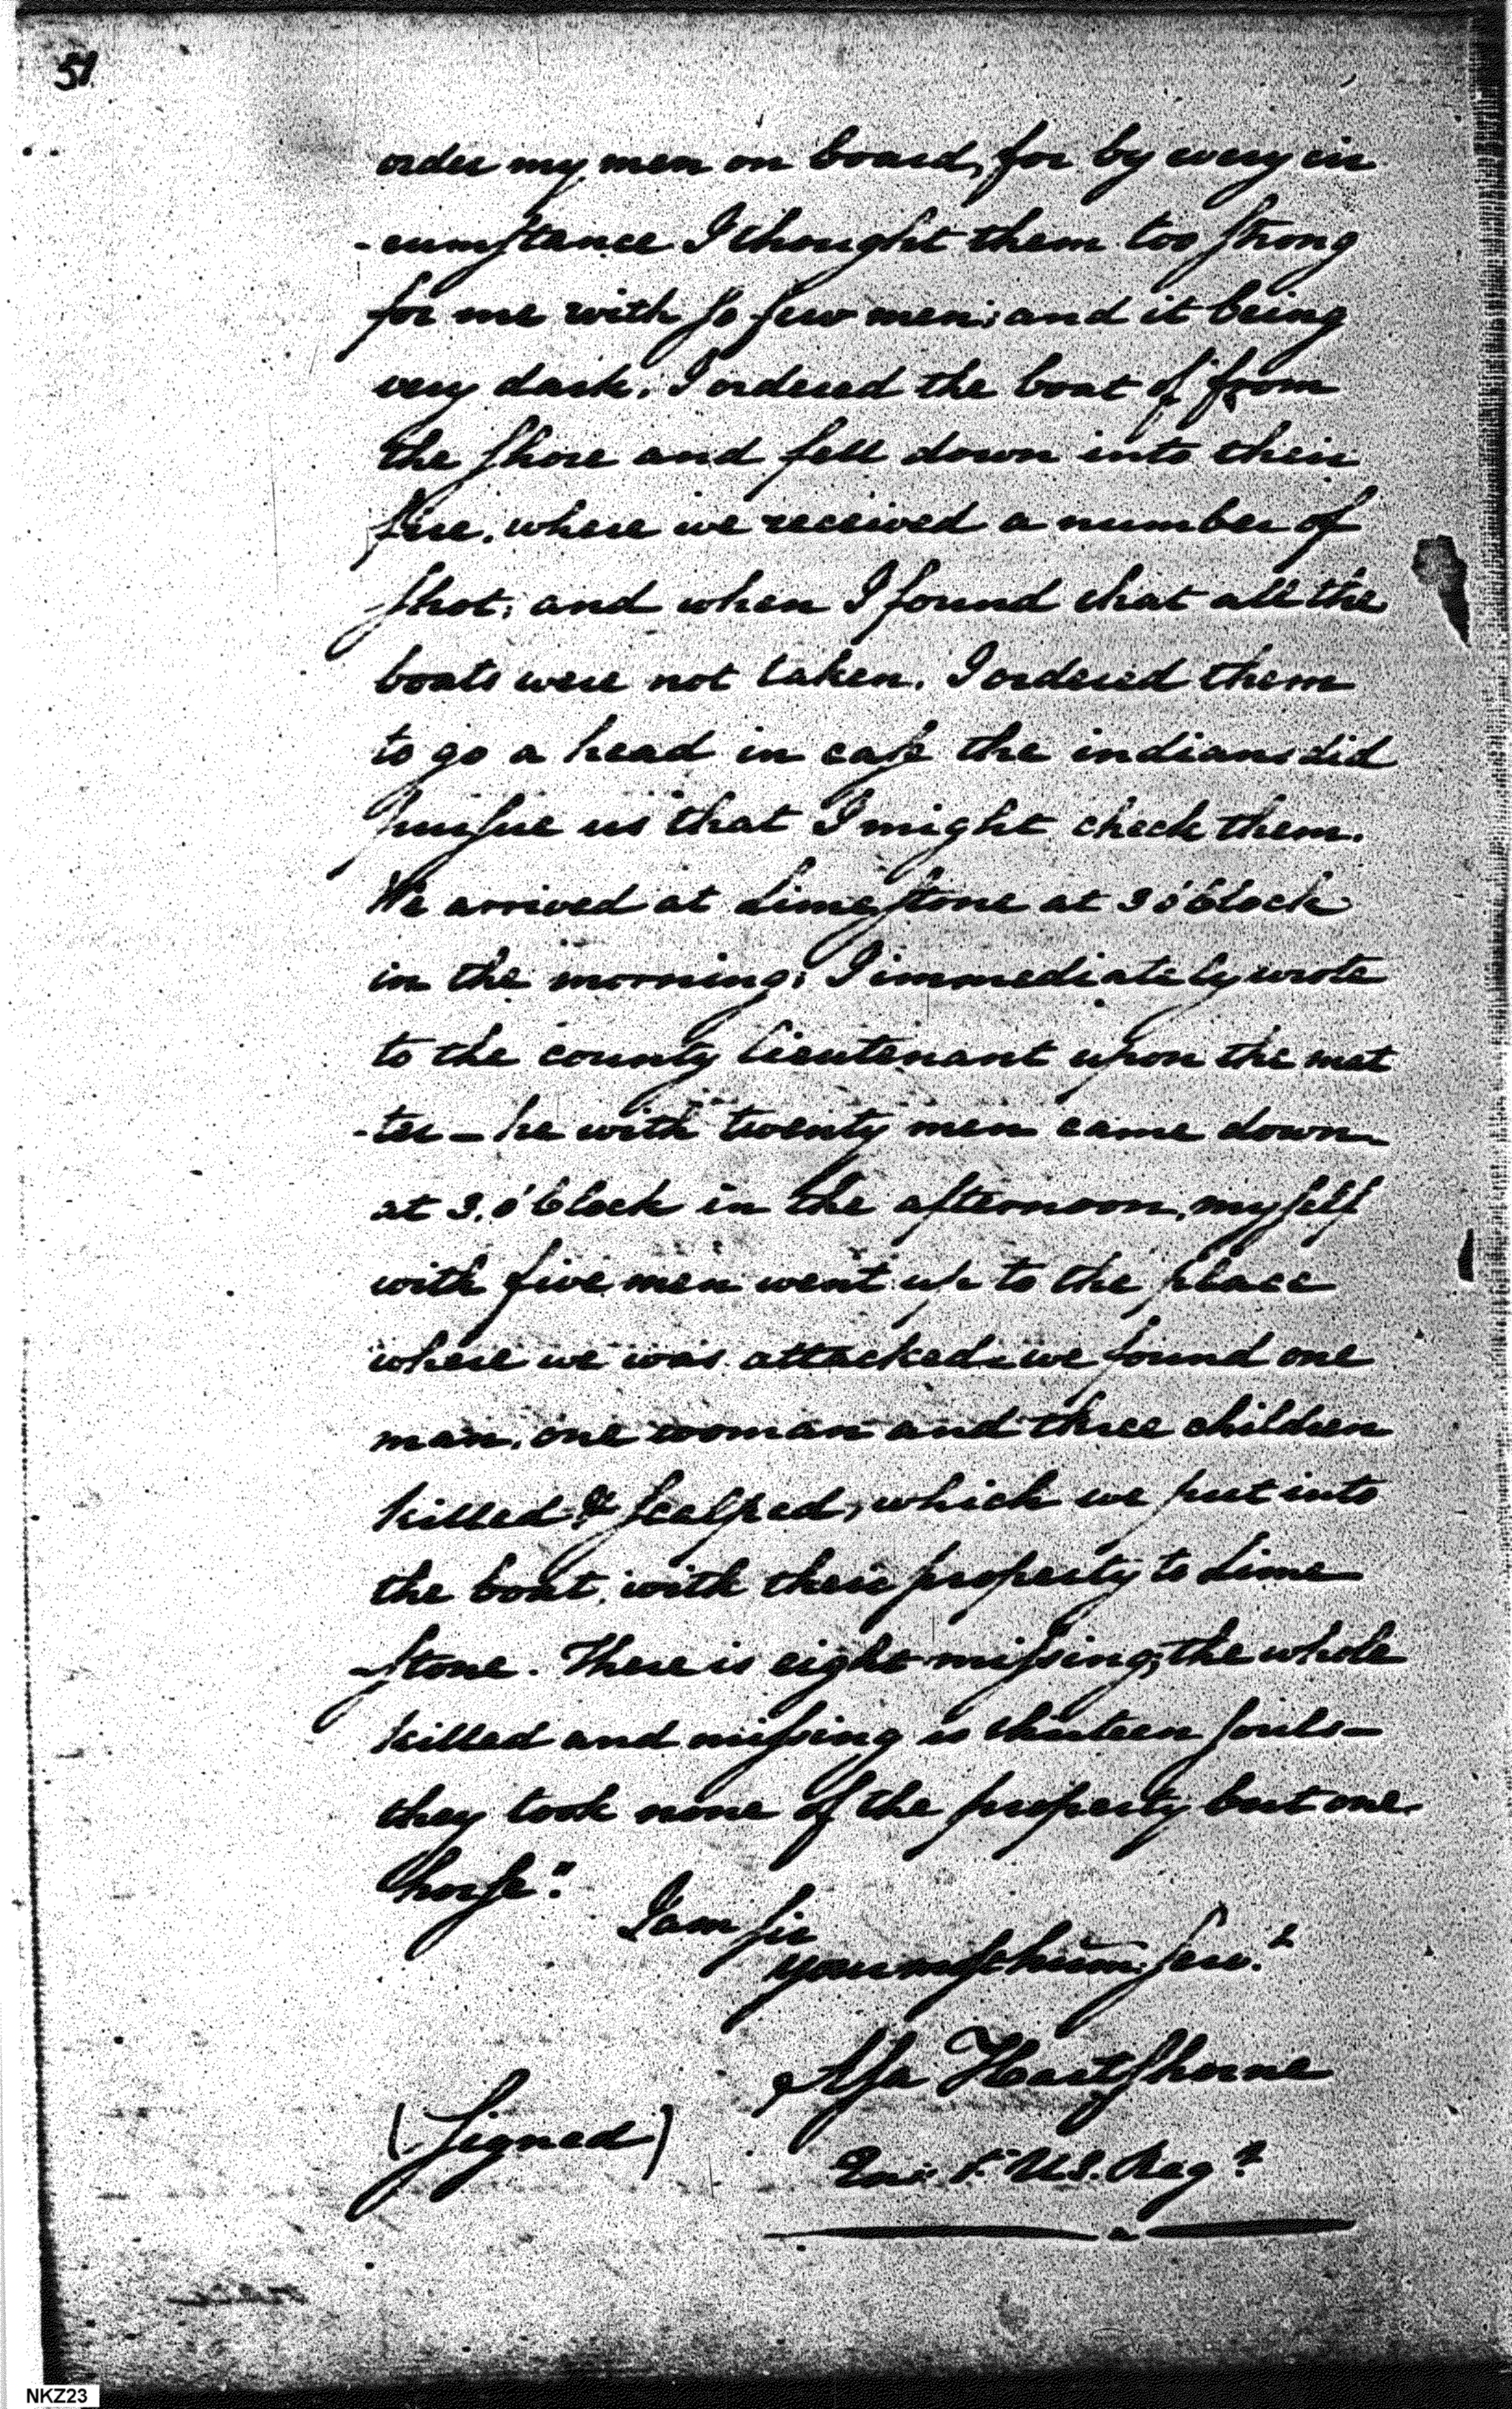 51
order my men on board, for by every cir
-cumstance I thought them too strong
for me with so few men; and it being
very dark, I ordered the boat of from
the shore and fell down into their
fire, where we received a number of
shot; and when I found that all the
boats were not taken, I ordered them
to go a head in case the indians did
pursue us that I might check them.
We arrived at Limestone at 3 o'Clock
in the morning; I immediately wrote
to the county lieutenant upon the mat
-ter – he with twenty men came down
at 3. o'Clock in the afternoon, myself
with five men went up to the place
where we was attacked, we found one
man, one woman and three children
killed & scalped, which we put into
the boat, with their property to Lime
-stone. There is eight missing, the whole
killed and missing is thirteen souls –
they took none of the property but one
horse."
I am sir
your most hum. serv.t
Asa Hartshorne
(Signed)
Ens: 1st U.S. Reg.t
NKZ23